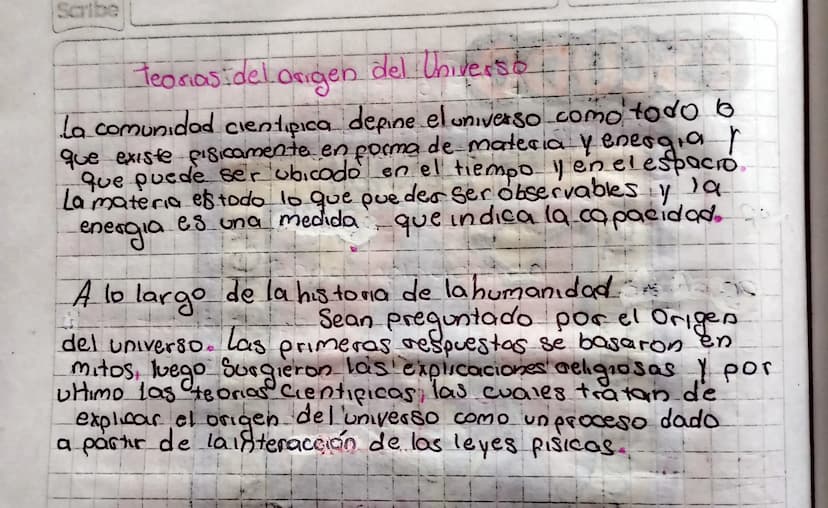 Scribe
Teorias del origen del Universo
La comunidad cientifica define el universo como todo lo
que existe fisicamente en forma de materia y energia y
que puede ser ubicado en el tiempo y en el espacio.
La materia es todo lo que pueden ser observables y la
energia es una medida que indica la capacidad.
A lo largo de la historia de la humanidad
Sean preguntado por el Origen
del universo. Las primeras respuestas se basaron en
mitos, luego Surgieron las explicaciones religiosas y por
ultimo las teorias cientificas, las cuales tratan de
explicar el origen del universo como un proceso dado
a partir de la interacción de las leyes fisicas.